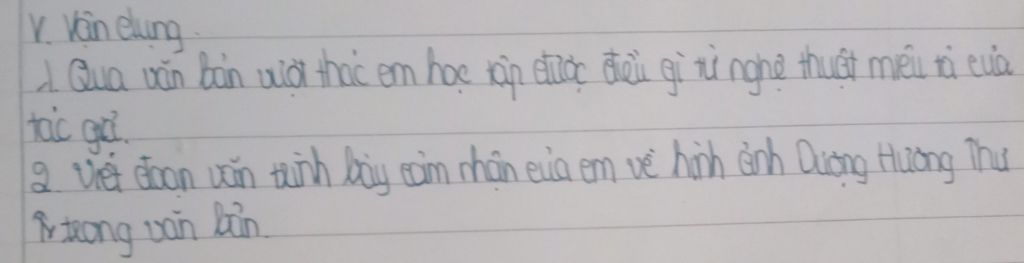 V. Vận dụng.
1. Qua văn bản vượt thác em học tập được điều gì từ nghệ thuật miêu tả của
tác giả.
2. Viết đoạn văn trình bày cảm nhận của em về hình ảnh Dượng Hương Thư
trong văn bản.